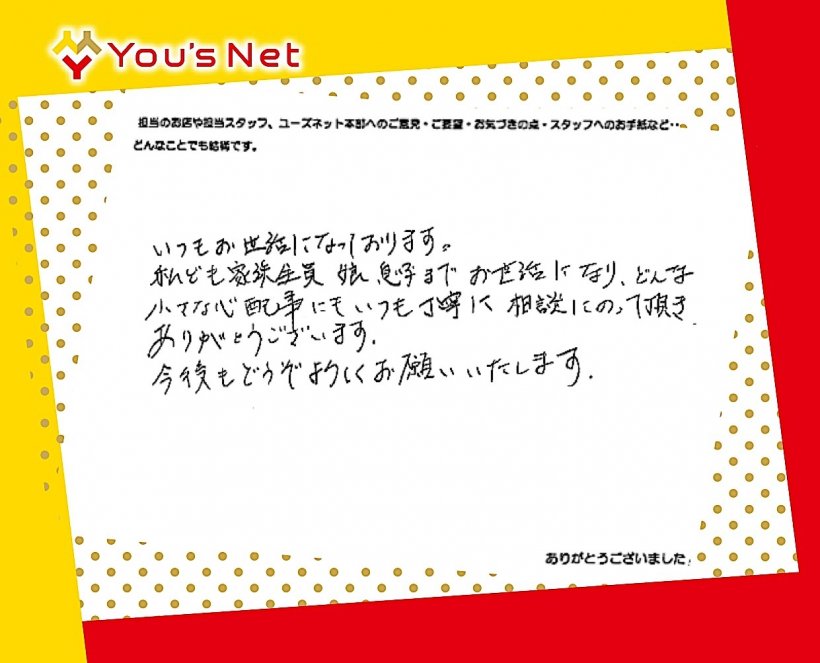 You's Net
担当のお店や担当スタッフ、ユーズネット本部へのご意見・ご要望・お気づきの点・スタッフへのお手紙など・・
どんなことでも結構です。
いつもお世話になっております。
私ども家族全員 娘、息子までお世話になり、どんな
小さな心配事にもいつも丁寧に相談にのって頂き
ありがとうございます。
今後もどうぞよろしくお願いいたします.
ありがとうございました